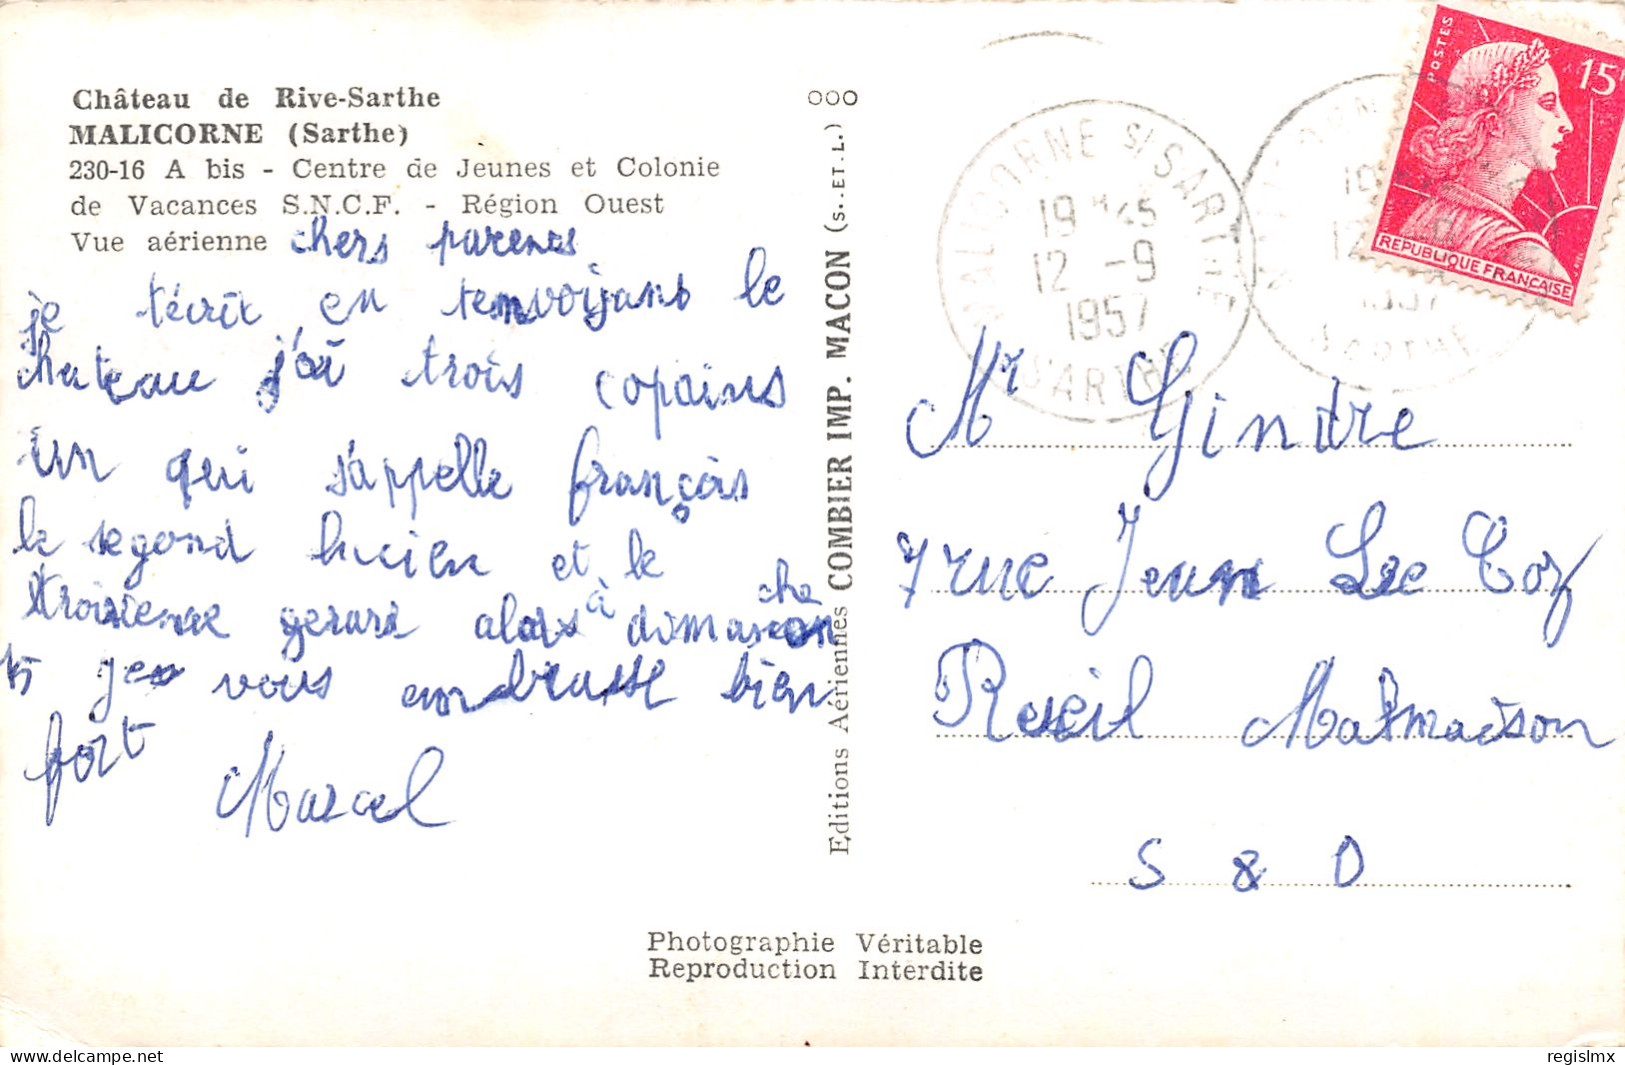 Château de Rive-Sarthe
MALICORNE (Sarthe)
230-16 A bis - Centre de Jeunes et Colonie
de Vacances S.N.C.F. - Région Ouest
Vue aérienne
chers parents
je t'écrit en tenvoyans le
chateau j'ai trois copains
un qui s'appelle françois
le segond lucien et le
troisieme gerard alors à dimanche
15 je vous embrasse bien
fort
Marcel
OOO
Editions Aériennes COMBIER IMP. MACON (S.-ET.L.)
MALICORNE S/ SARTHE
19 H 45
12 -9
1957
SARTHE
POSTES
15F
REPUBLIQUE FRANÇAISE
Mr Gindre
7 rue Jean Le Coz
Rueil Malmaison
S & O
Photographie Véritable
Reproduction Interdite
delcampe.net
regislmx